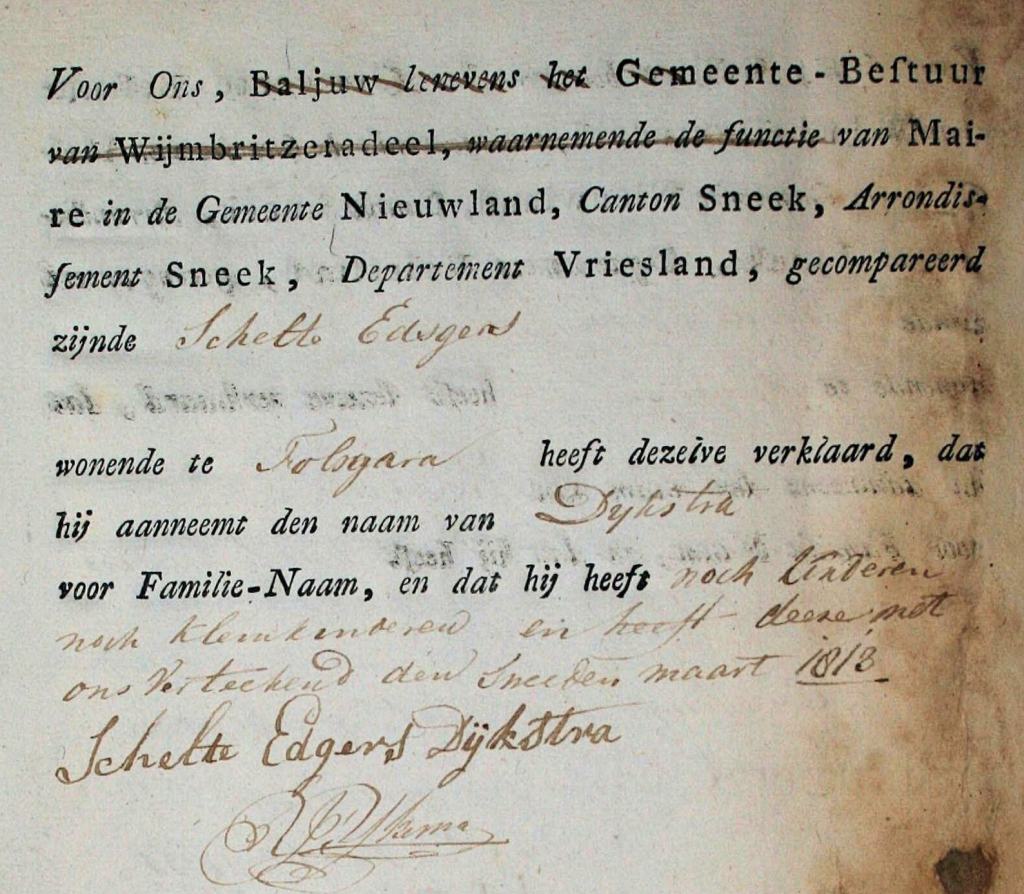 Voor Ons, Baljuw benevens het Gemeente-Beſtuur
van Wijmbritzeradeel, waarnemende de functie van Mai-
re in de Gemeente Nieuwland, Canton Sneek, Arrondis-
ſement Sneek, Departement Vriesland, gecompareerd
zijnde Schelte Edsgers
wonende te Folsgara heeft dezelve verklaard, dat
hij aanneemt den naam van Dykstra
voor Familie-Naam, en dat hij heeft noch kinderen
noch kleinkinderen en heeft deese met
ons Verteekend den maart 1813
Schelte Edgers Dÿkstra